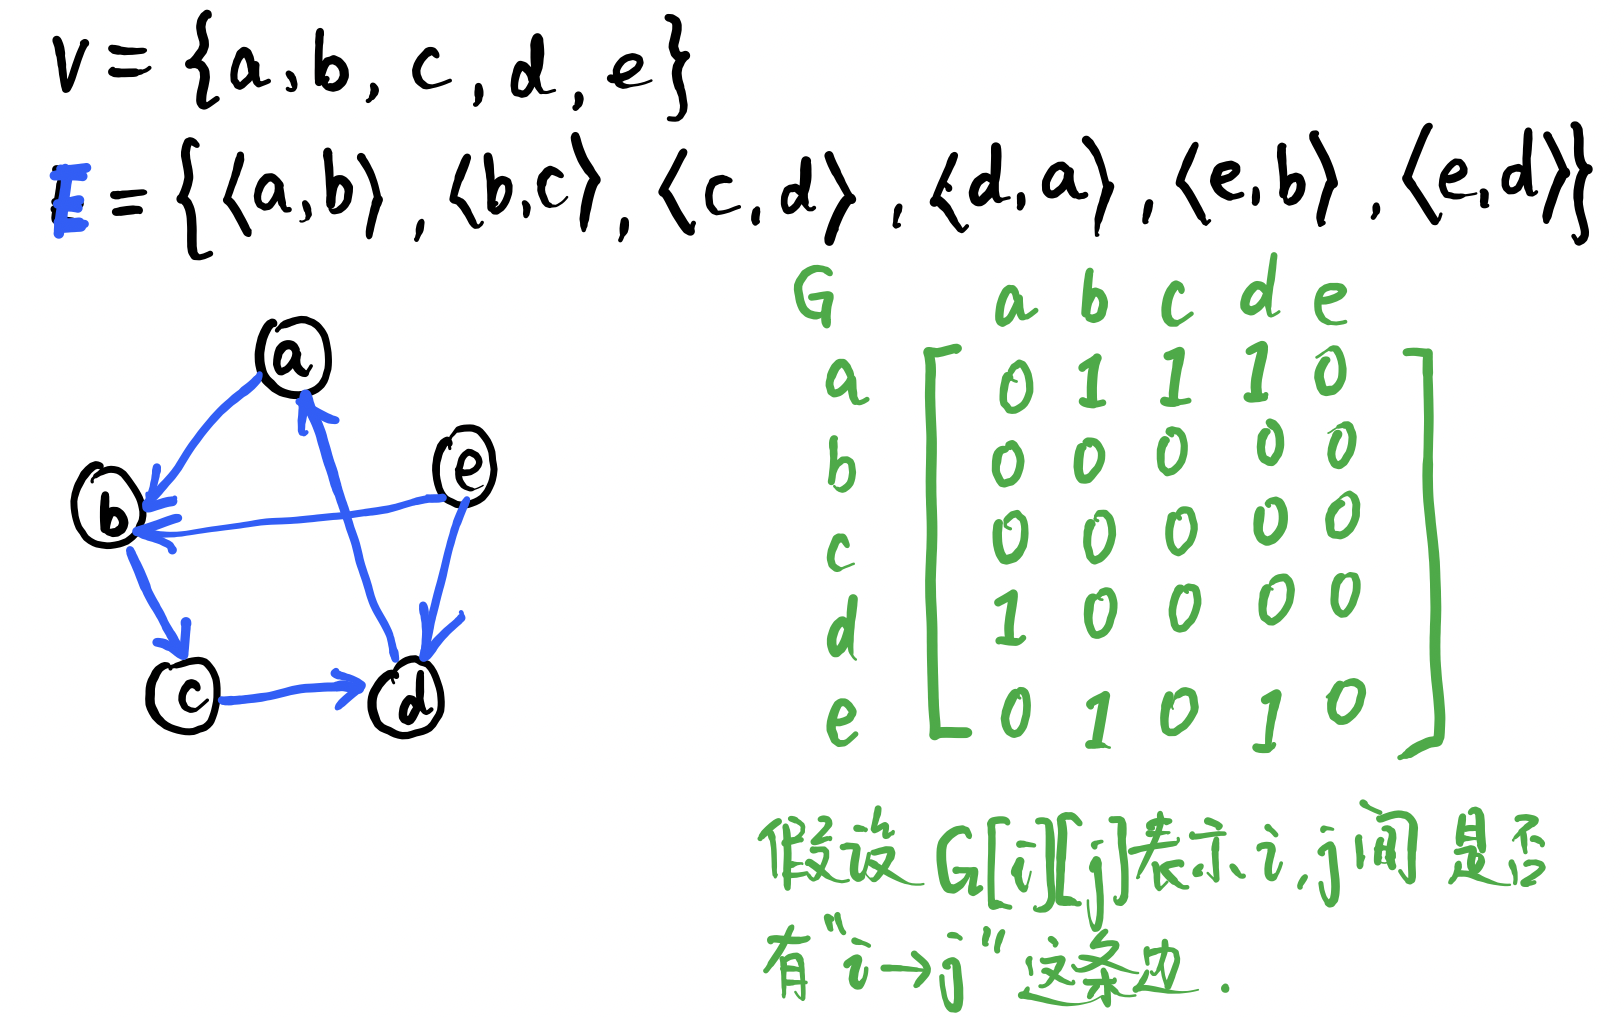 V = {a, b, c, d, e}
E = {⟨a,b⟩, ⟨b,c⟩, ⟨c,d⟩, ⟨d,a⟩, ⟨e,b⟩, ⟨e,d⟩}
a
e
b
c
d
G a b c d e
a 0 1 1 1 0
b 0 0 0 0 0
c 0 0 0 0 0
d 1 0 0 0 0
e 0 1 0 1 0
假设 G[i][j]表示 i,j间 是否
有"i→j"这条边.